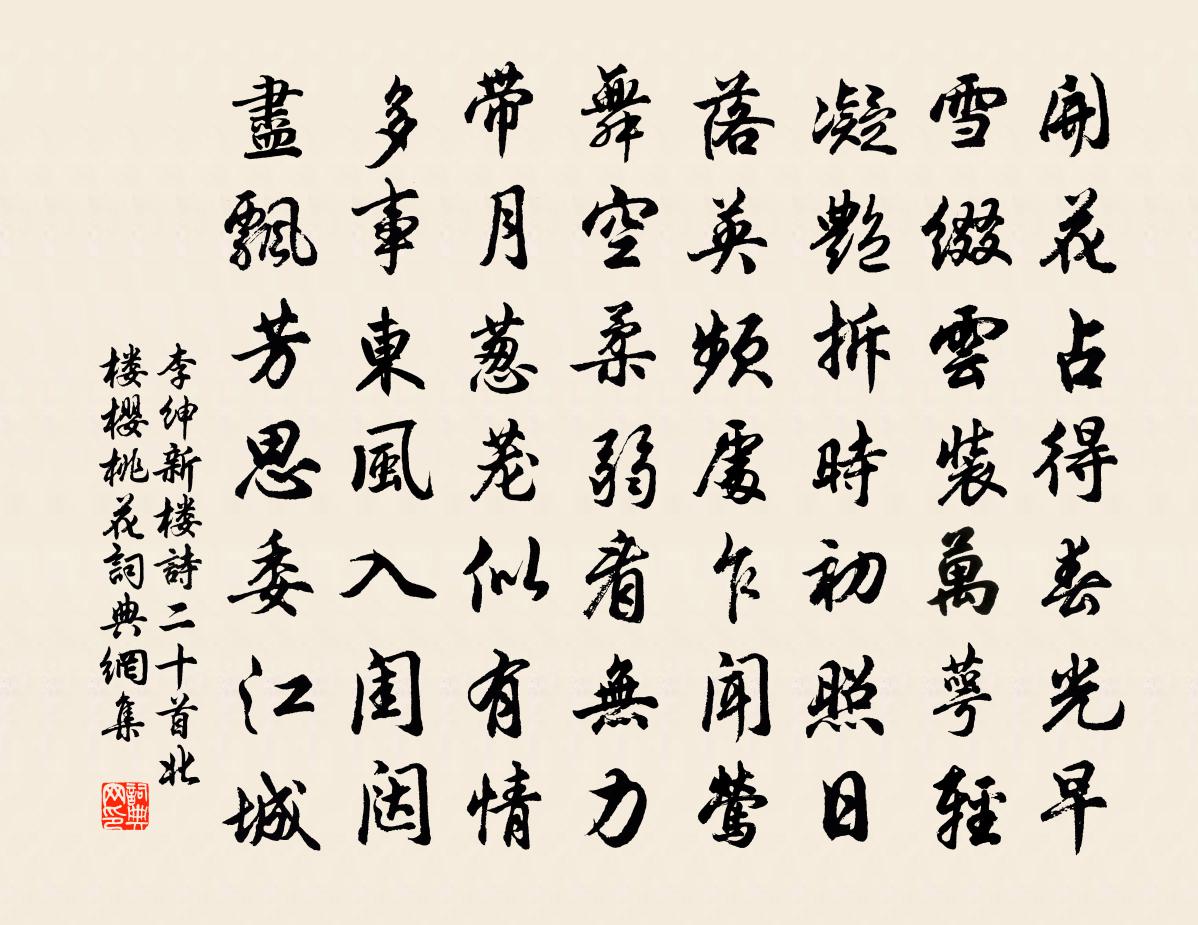 開花占得春光早
雪綴雲裝萬萼輕
凝艷拆時初照日
落英頻處乍聞鶯
舞空柔弱看無力
帶月葱茏似有情
多事東風入閨闥
盡飄芳思委江城
李紳新楼詩二十首北
楼櫻桃花詞典網集
詞典网印